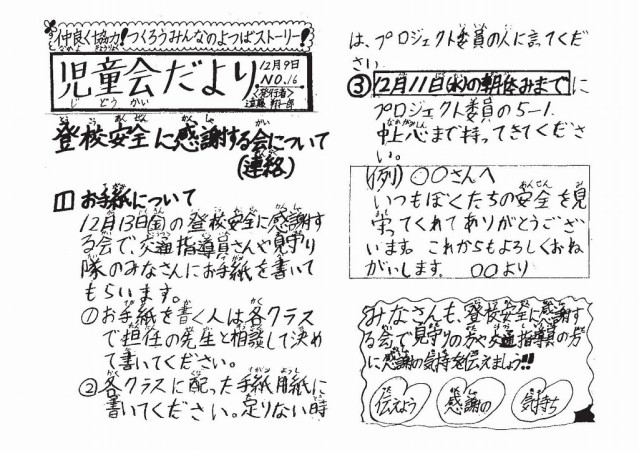 仲良く協力!つくろうみんなのよつばストーリー!
児童会だより
じどうかい
12月9日
NO.16
<発行者>
登校安全に感謝する会について
(連絡)
1 お手紙について
12月13日(金)の登校安全に感謝す
る会で、交通指導員さんや見守り
隊のみなさんにお手紙を書いて
もらいます。
①お手紙を書く人は各クラス
で担任の先生と相談して決め
て書いてください。
②各クラスに配った手紙用紙に
書いてください。足りない時
は、プロジェクト委員の人に言ってくだ
さい。
③12月11日(水)の朝休みまでに
プロジェクト委員の5-1、
まで持ってきてくださ
い。
(例) 〇〇さんへ
いつもぼくたちの安全を見
守ってくれてありがとうござ
います。これからもよろしくおね
がいします。 〇〇より
みなさんも、登校安全に感謝す
る会で見守りの方や交通指導員の方
に感謝の気持を伝えましょう!!
伝えよう
感謝の
気持ち